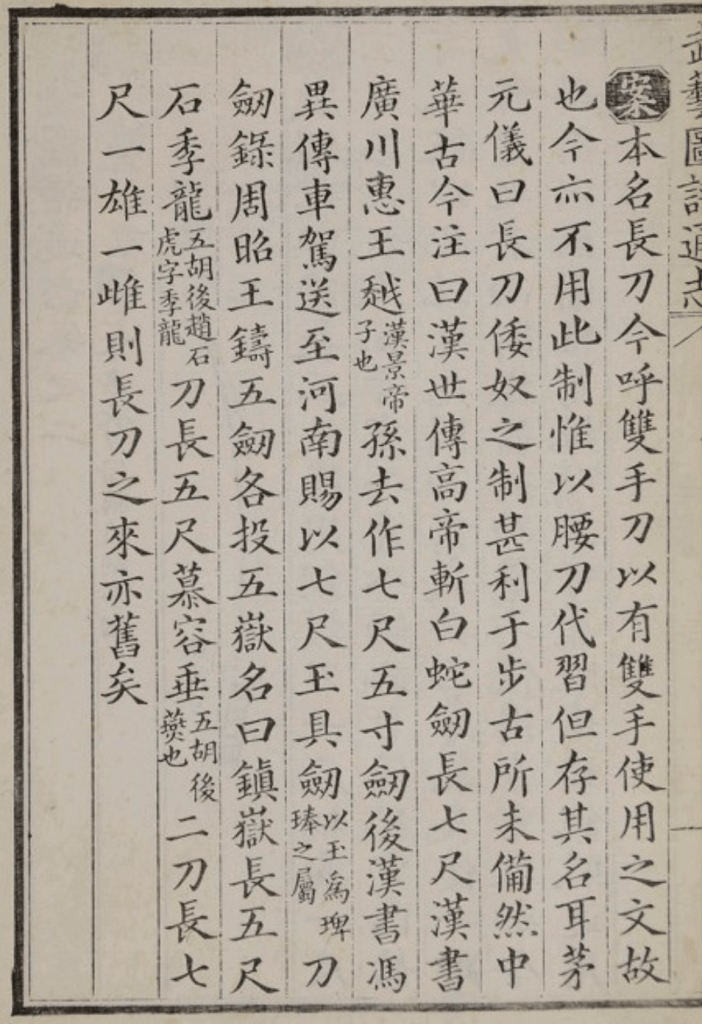 武藝圖譜通志
案本名長刀今呼雙手刀以有雙手使用之文故
也今亦不用此制惟以腰刀代習但存其名耳茅
元儀曰長刀倭奴之制甚利于步古所未備然中
華古今注曰漢世傳高帝斬白蛇劒長七尺漢書
廣川惠王越漢景帝子也孫去作七尺五寸劒後漢書馮
異傳車駕送至河南賜以七尺玉具劒以玉爲琕琫之屬刀
劒錄周昭王鑄五劒各投五嶽名曰鎭嶽長五尺
石季龍五胡後趙石虎字季龍刀長五尺慕容垂五胡後燕也二刀長七
尺一雄一雌則長刀之來亦舊矣